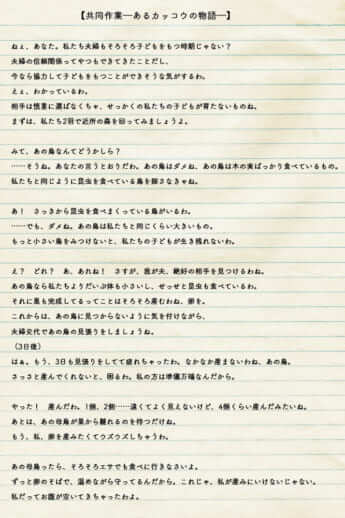 【共同作業―あるカッコウの物語―】
ねぇ、あなた。私たち夫婦もそろそろ子どもをもつ時期じゃない?
夫婦の信頼関係ってやつもできてきたことだし、
今なら協力して子どもをもつことができそうな気がするわ。
えぇ、わかっているわ。
相手は慎重に選ばなくちゃ、せっかくの私たちの子どもが育たないものね。
まずは、私たち2羽で近所の森を回ってみましょうよ。
みて、あの鳥なんてどうかしら?
……そうね。あなたの言うとおりだわ。あの鳥はダメね、あの鳥は木の実ばっかり食べているもの。
私たちと同じように昆虫を食べている鳥を探さなきゃね。
あ! さっきから昆虫を食べまくっている鳥がいるわ。
……でも、ダメね。あの鳥は私たちと同じくらい大きいもの。
もっと小さい鳥をみつけないと、私たちの子どもが生き残れないわ。
え? どれ? あ、あれね! さすが、我が夫、絶好の相手を見つけるわね。
あの鳥なら私たちよりだいぶ体も小さいし、せっせと昆虫も食べているわ。
それに巣も完成してるってことはそろそろ産むわね、卵を。
これからは、あの鳥に見つからないように気を付けながら、
夫婦交代であの鳥の見張りをしましょうね。
(3日後)
はぁ。もう、3日も見張りをしてて疲れちゃったわ。なかなか産まないわね、あの鳥。
さっさと産んでくれないと、困るわ。私の方は準備万端なんだから。
やった! 産んだわ。1個、2個……遠くてよく見えないけど、4個くらい産んだみたいね。
あとは、あの母鳥が巣から離れるのを待つだけね。
もう、私、卵を産みたくてウズウズしちゃうわ。
あの母鳥ったら、そろそろエサでも食べに行きなさいよ。
ずっと卵のそばで、温めながら守ってるんだから。これじゃ、私が産みにいけないじゃない。
私だってお腹が空いてきちゃったわよ。